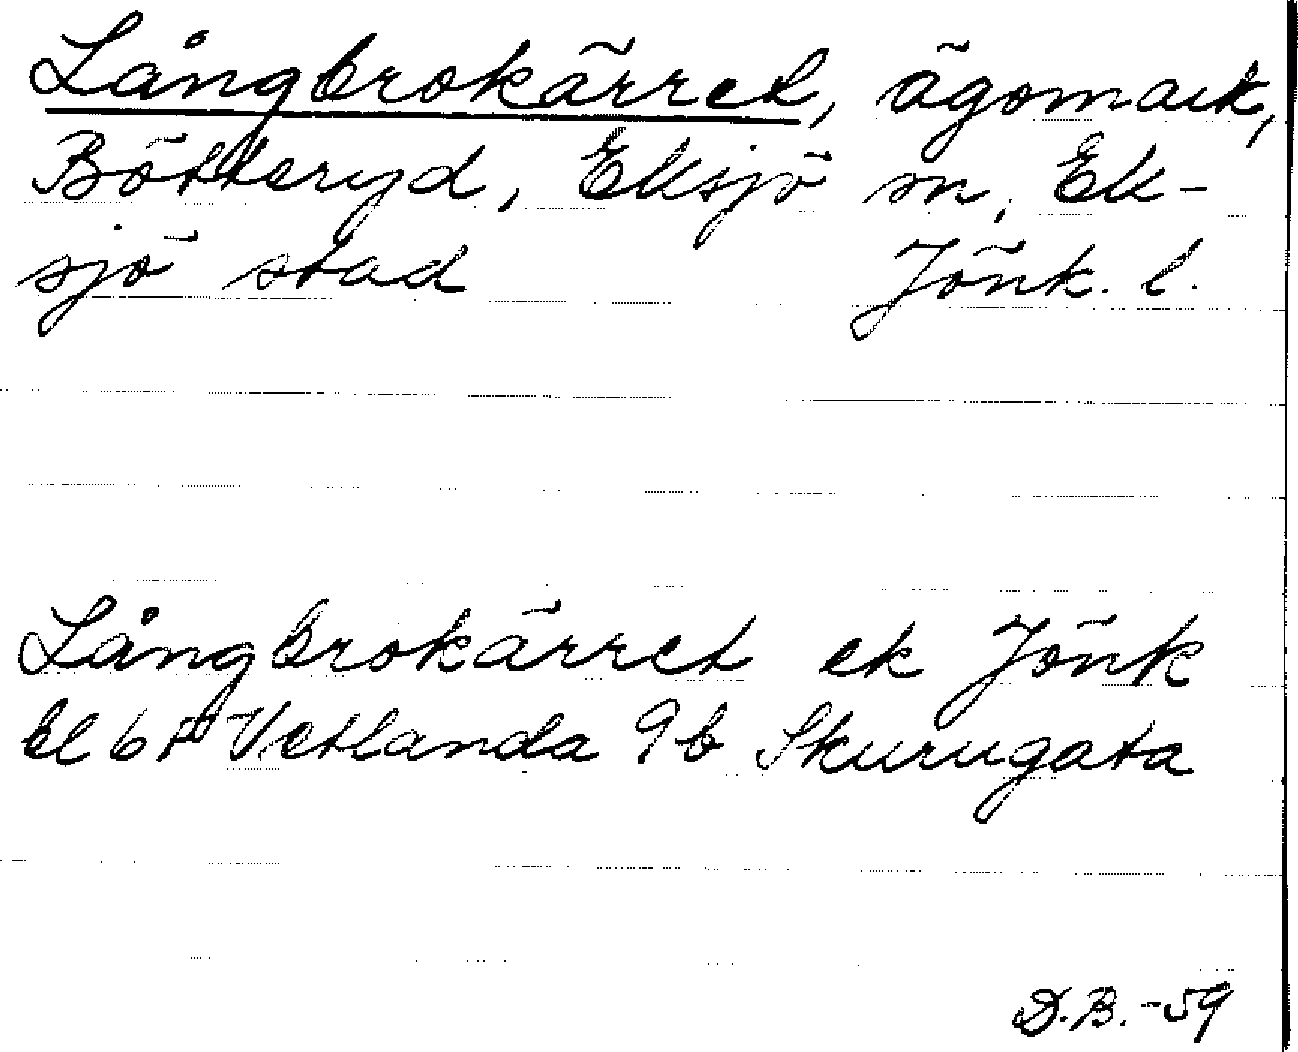 Långbrokärret, ägomark,
Bötteryd, Eksjö sn, Ek-
sjö stad Jönk. l.
Långbrokärret ek Jönk
bl 6F Vetlanda 9b Skurugata
D.B. -59